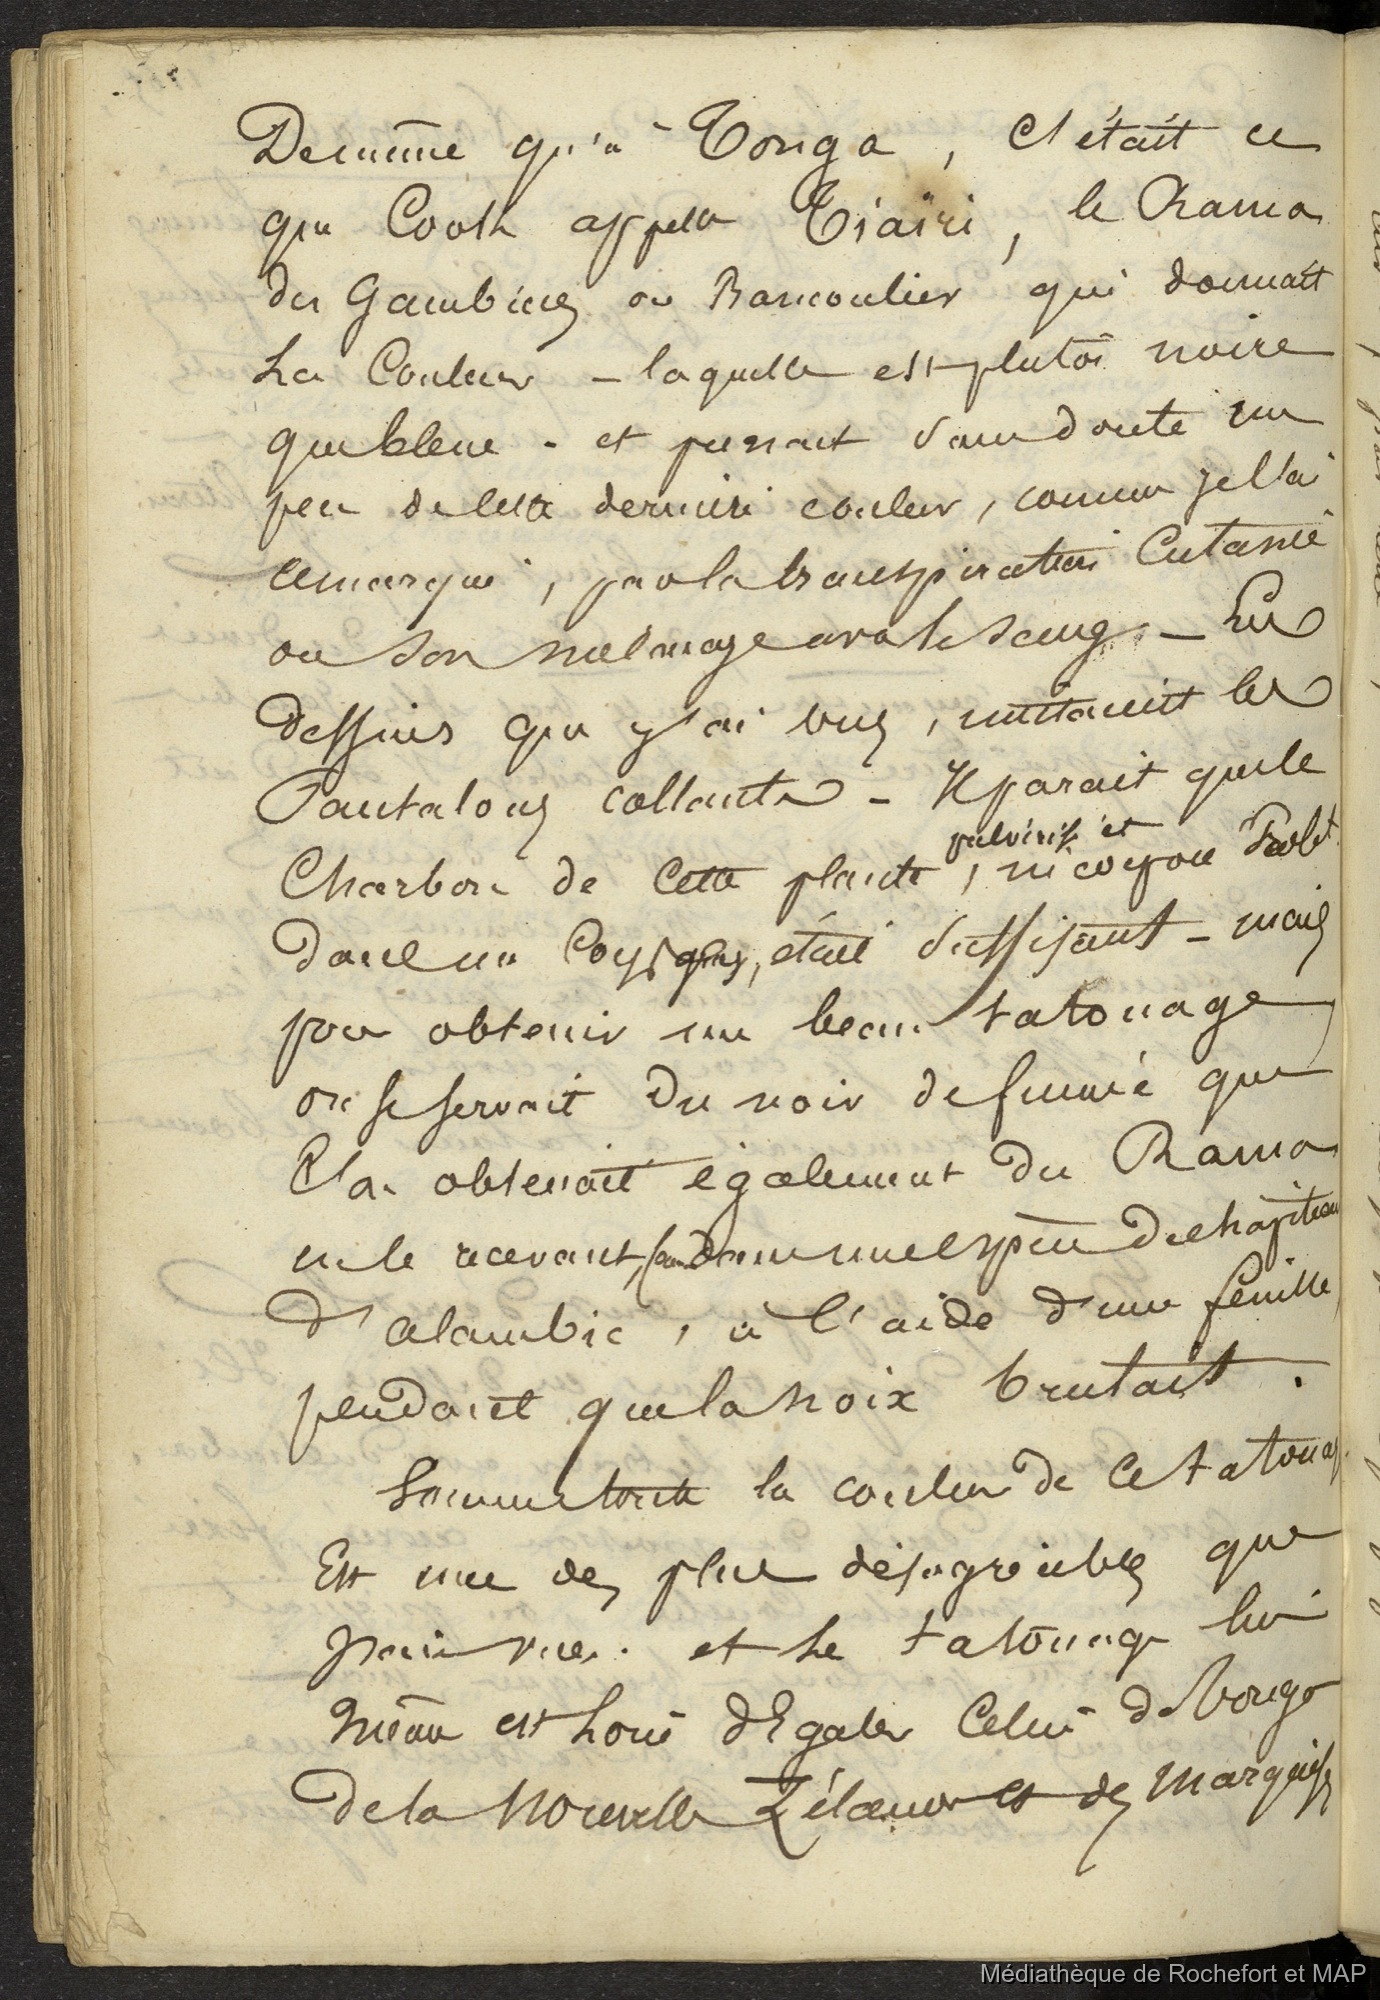 Demême qu'à Tonga, C'était ce
que Cook appelle Tiaïri, le Rama
des Gambiers ou Bancoulier qui donnait
La Couleur - laquelle est plutôt noire
que bleue - et prenant sans doute un
peu de cette dernière couleur, comme je l'ai
remarqué, par la transpiration Cutanée
ou son mélmage avec le sang. - Les
dessins que j'ai vus, imitaient les
Pantalons collants - Il parait que le
Charbon de Cette plante, pulvérisé et
dans un était suffisant - mais
pour obtenir un beau tatouage
on se servait du noir de fumée que
l'on obtenait également du Rama
en le recevant, dans une espèce de chapiteau
d'alambic, à l'aide d'une feuille
pendant que la noix brulait.
Somme toute la couleur de ce tatouag
Est une des plus désagréables que
j'aie vues. et le tatouage lui
même est loin d'Egaler Celui de
de la Nouvelle Zélande et des Marquises
Médiathèque de Rochefort et MAP